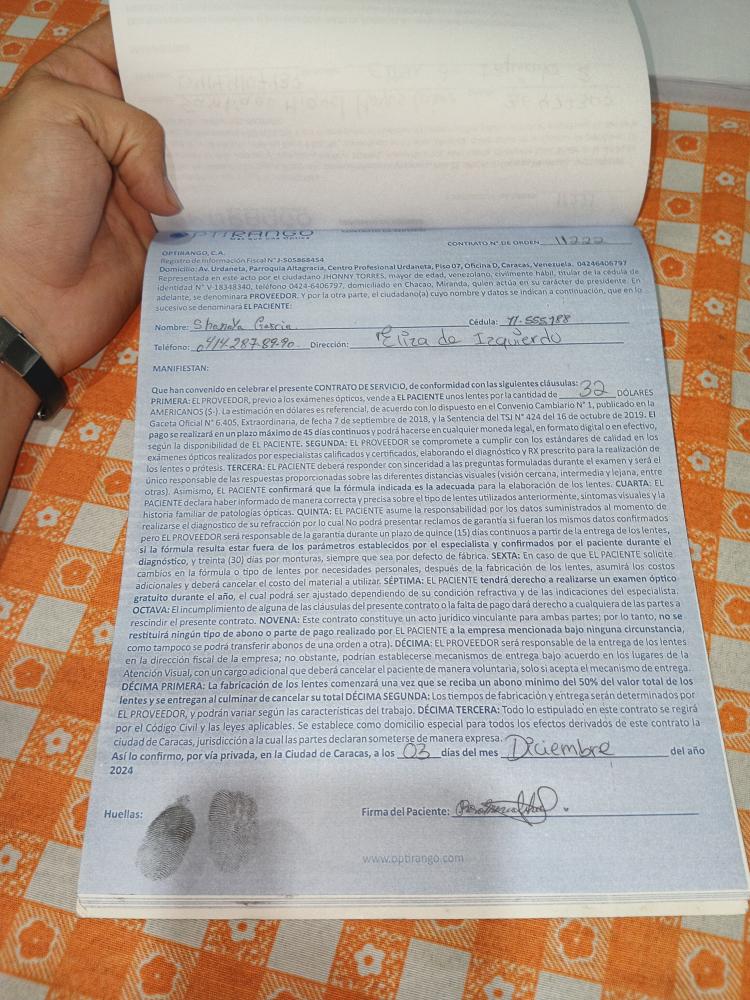 OPTIRANGO
CONTRATO N° DE ORDEN 11222
OPTIRANGO, C.A.
Registro de Información Fiscal N° J-505868454
Domicilio: Av. Urdaneta, Parroquia Altagracia, Centro Profesional Urdaneta, Piso 07, Oficina D, Caracas, Venezuela. 04246406797
Representada en este acto por el ciudadano JHONNY TORRES, mayor de edad, venezolano, civilmente hábil, titular de la cédula de
identidad N° V-18348340, teléfono 0424-6406797, domiciliado en Chacao, Miranda, quien actúa en su carácter de presidente. En
adelante, se denominara PROVEEDOR. Y por la otra parte, el ciudadano(a) cuyo nombre y datos se indican a continuación, que en lo
sucesivo se denominará EL PACIENTE:
Nombre: Garcia Cédula: 11.555.988
Teléfono: 0414.287.89.90. Dirección: Eliza de Izquierdo
MANIFIESTAN:
Que han convenido en celebrar el presente CONTRATO DE SERVICIO, de conformidad con las siguientes cláusulas:
PRIMERA: EL PROVEEDOR, previo a los exámenes ópticos, vende a EL PACIENTE unos lentes por la cantidad de 32 DÓLARES
AMERICANOS ($-). La estimación en dólares es referencial, de acuerdo con lo dispuesto en el Convenio Cambiario N° 1, publicado en la
Gaceta Oficial N° 6.405, Extraordinaria, de fecha 7 de septiembre de 2018, y la Sentencia del TSJ N° 424 del 16 de octubre de 2019. El
pago se realizará en un plazo máximo de 45 días continuos y podrá hacerse en cualquier moneda legal, en formato digital o en efectivo,
según la disponibilidad de EL PACIENTE. SEGUNDA: EL PROVEEDOR se compromete a cumplir con los estándares de calidad en los
exámenes ópticos realizados por especialistas calificados y certificados, elaborando el diagnóstico y RX prescrito para la realización de
los lentes o prótesis. TERCERA: EL PACIENTE deberá responder con sinceridad a las preguntas formuladas durante el examen y será el
único responsable de las respuestas proporcionadas sobre las diferentes distancias visuales (visión cercana, intermedia y lejana, entre
otras). Asimismo, EL PACIENTE confirmará que la fórmula indicada es la adecuada para la elaboración de los lentes. CUARTA: EL
PACIENTE declara haber informado de manera correcta y precisa sobre el tipo de lentes utilizados anteriormente, síntomas visuales y la
historia familiar de patologías ópticas. QUINTA: EL PACIENTE asume la responsabilidad por los datos suministrados al momento de
realizarse el diagnostico de su refracción por lo cual No podrá presentar reclamos de garantía si fueran los mismos datos confirmados
pero EL PROVEEDOR será responsable de la garantía durante un plazo de quince (15) días continuos a partir de la entrega de los lentes,
si la fórmula resulta estar fuera de los parámetros establecidos por el especialista y confirmados por el paciente durante el
diagnóstico, y treinta (30) días por monturas, siempre que sea por defecto de fábrica. SEXTA: En caso de que EL PACIENTE solicite
cambios en la fórmula o tipo de lentes por necesidades personales, después de la fabricación de los lentes, asumirá los costos
adicionales y deberá cancelar el costo del material a utilizar. SÉPTIMA: EL PACIENTE tendrá derecho a realizarse un examen óptico
gratuito durante el año, el cual podrá ser ajustado dependiendo de su condición refractiva y de las indicaciones del especialista.
OCTAVA: El incumplimiento de alguna de las cláusulas del presente contrato o la falta de pago dará derecho a cualquiera de las partes a
rescindir el presente contrato. NOVENA: Este contrato constituye un acto jurídico vinculante para ambas partes; por lo tanto, no se
restituirá ningún tipo de abono o parte de pago realizado por EL PACIENTE a la empresa mencionada bajo ninguna circunstancia,
como tampoco se podrá transferir abonos de una orden a otra). DÉCIMA: EL PROVEEDOR será responsable de la entrega de los lentes
en la dirección fiscal de la empresa; no obstante, podrían establecerse mecanismos de entrega bajo acuerdo en los lugares de la
Atención Visual, con un cargo adicional que deberá cancelar el paciente de manera voluntaria, solo si acepta el mecanismo de entrega.
DÉCIMA PRIMERA: La fabricación de los lentes comenzará una vez que se reciba un abono mínimo del 50% del valor total de los
lentes y se entregan al culminar de cancelar su total DÉCIMA SEGUNDA: Los tiempos de fabricación y entrega serán determinados por
EL PROVEEDOR, y podrán variar según las características del trabajo. DÉCIMA TERCERA: Todo lo estipulado en este contrato se regirá
por el Código Civil y las leyes aplicables. Se establece como domicilio especial para todos los efectos derivados de este contrato la
ciudad de Caracas, jurisdicción a la cual las partes declaran someterse de manera expresa.
Así lo confirmo, por vía privada, en la Ciudad de Caracas, a los 03 días del mes Diciembre del año
2024
Huellas: Firma del Paciente:
www.optirango.com